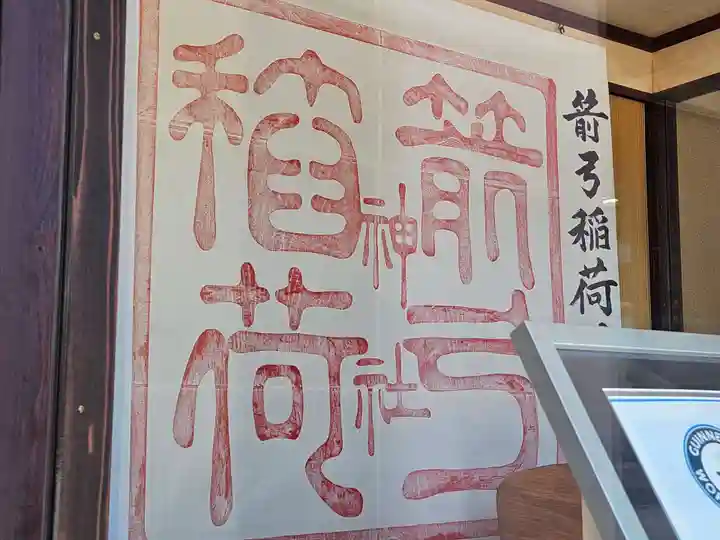 箭弓稲荷
箭弓
稲荷
神社
GUINNE
WO